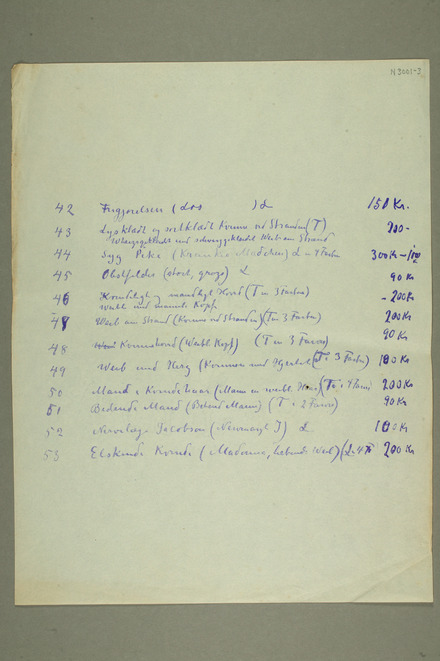 N 3001-3
42 Frigjørelsen (Los )L 150 Kr.
43 Lyskledt og sortkledt Kvinne ved Stranden (T) 200-
Weissgekleidet und schwarzgekleidet Weib am Strand
44 Syg Pike (Krankes Mädchen) L - 4 Farben 300 Kr -
45 Obstfelder (stort, ) L 90 Kr
46 Kvindeligt og mandligt Hoved (T in 3 Farben) - 200 Kr
weibl und männl Kopf
47 Weib am Strand (Kvinne ved Stranden) (T in 3 Farben) 200 Kr
48 Kvinnehoved (Weibl Kopf) (T in 3 Farven) 90 Kr
49 Weib und Herz (Kvinnen und Hjertet) (T 3 Farben) 100 Kr
50 Mand i Kvindehaar (Mann in weibl. Haar) (T i 4 Farver) 200 Kr
51 Bedende Mand (Betend Mann) (T i 2 Farver) 90 Kr
52 Nervelæge Jacobson (Nervenarzt J) L 100 Kr
53 Elskende Kvinde (Madonna, liebende Weib) (L 4 F 200 Kr